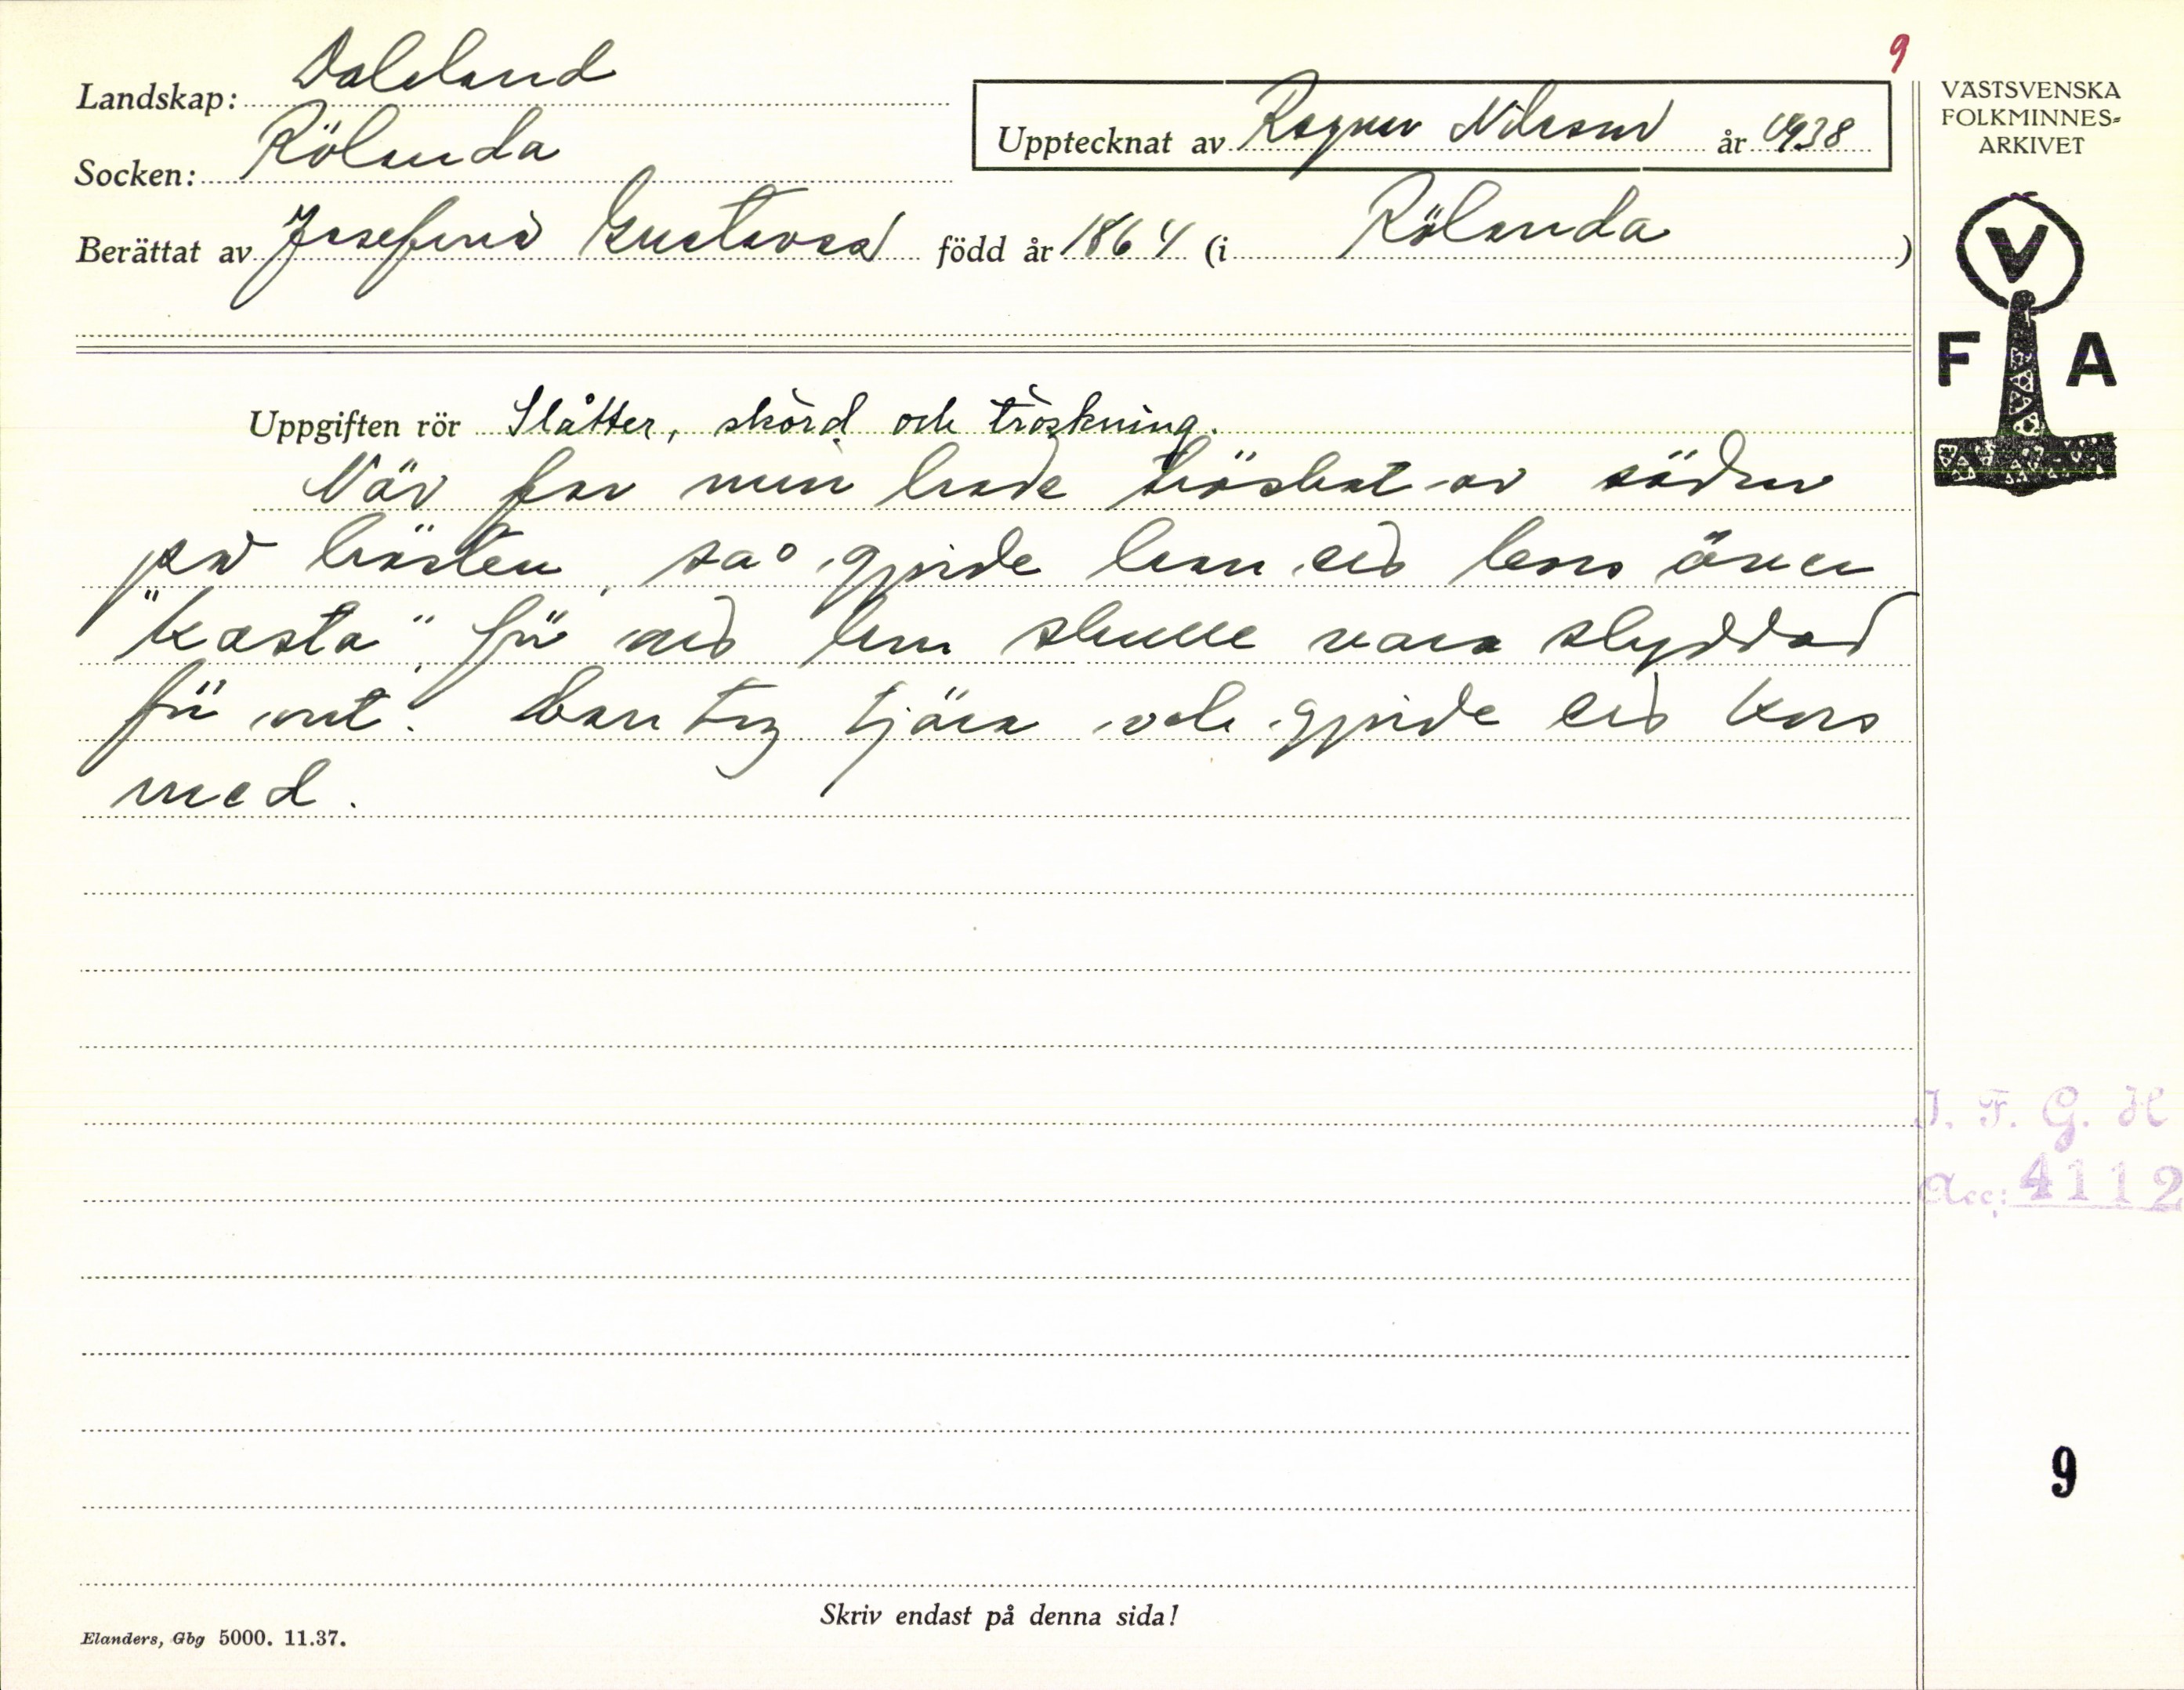 9
Landskap: Dalsland
Socken: Rölanda
Upptecknat av Ragnar Nilsson år 1938
Berättat av Josefina Gustavsd född år 1864 (i Rölanda)
VÄSTSVENSKA
FOLKMINNES-
ARKIVET
V
F A
Uppgiften rör Slåtter, skörd och tröskning.
När far min hade tröskat av säden
på hösten, så gjorde han ett kors över
"kasta", för att han skulle vara skyddad
för ont. Han tog tjära och gjorde ett kors
med.
I. F. G. H
Acc: 4112
9
Skriv endast på denna sida!
Elanders, Gbg 5000. 11.37.